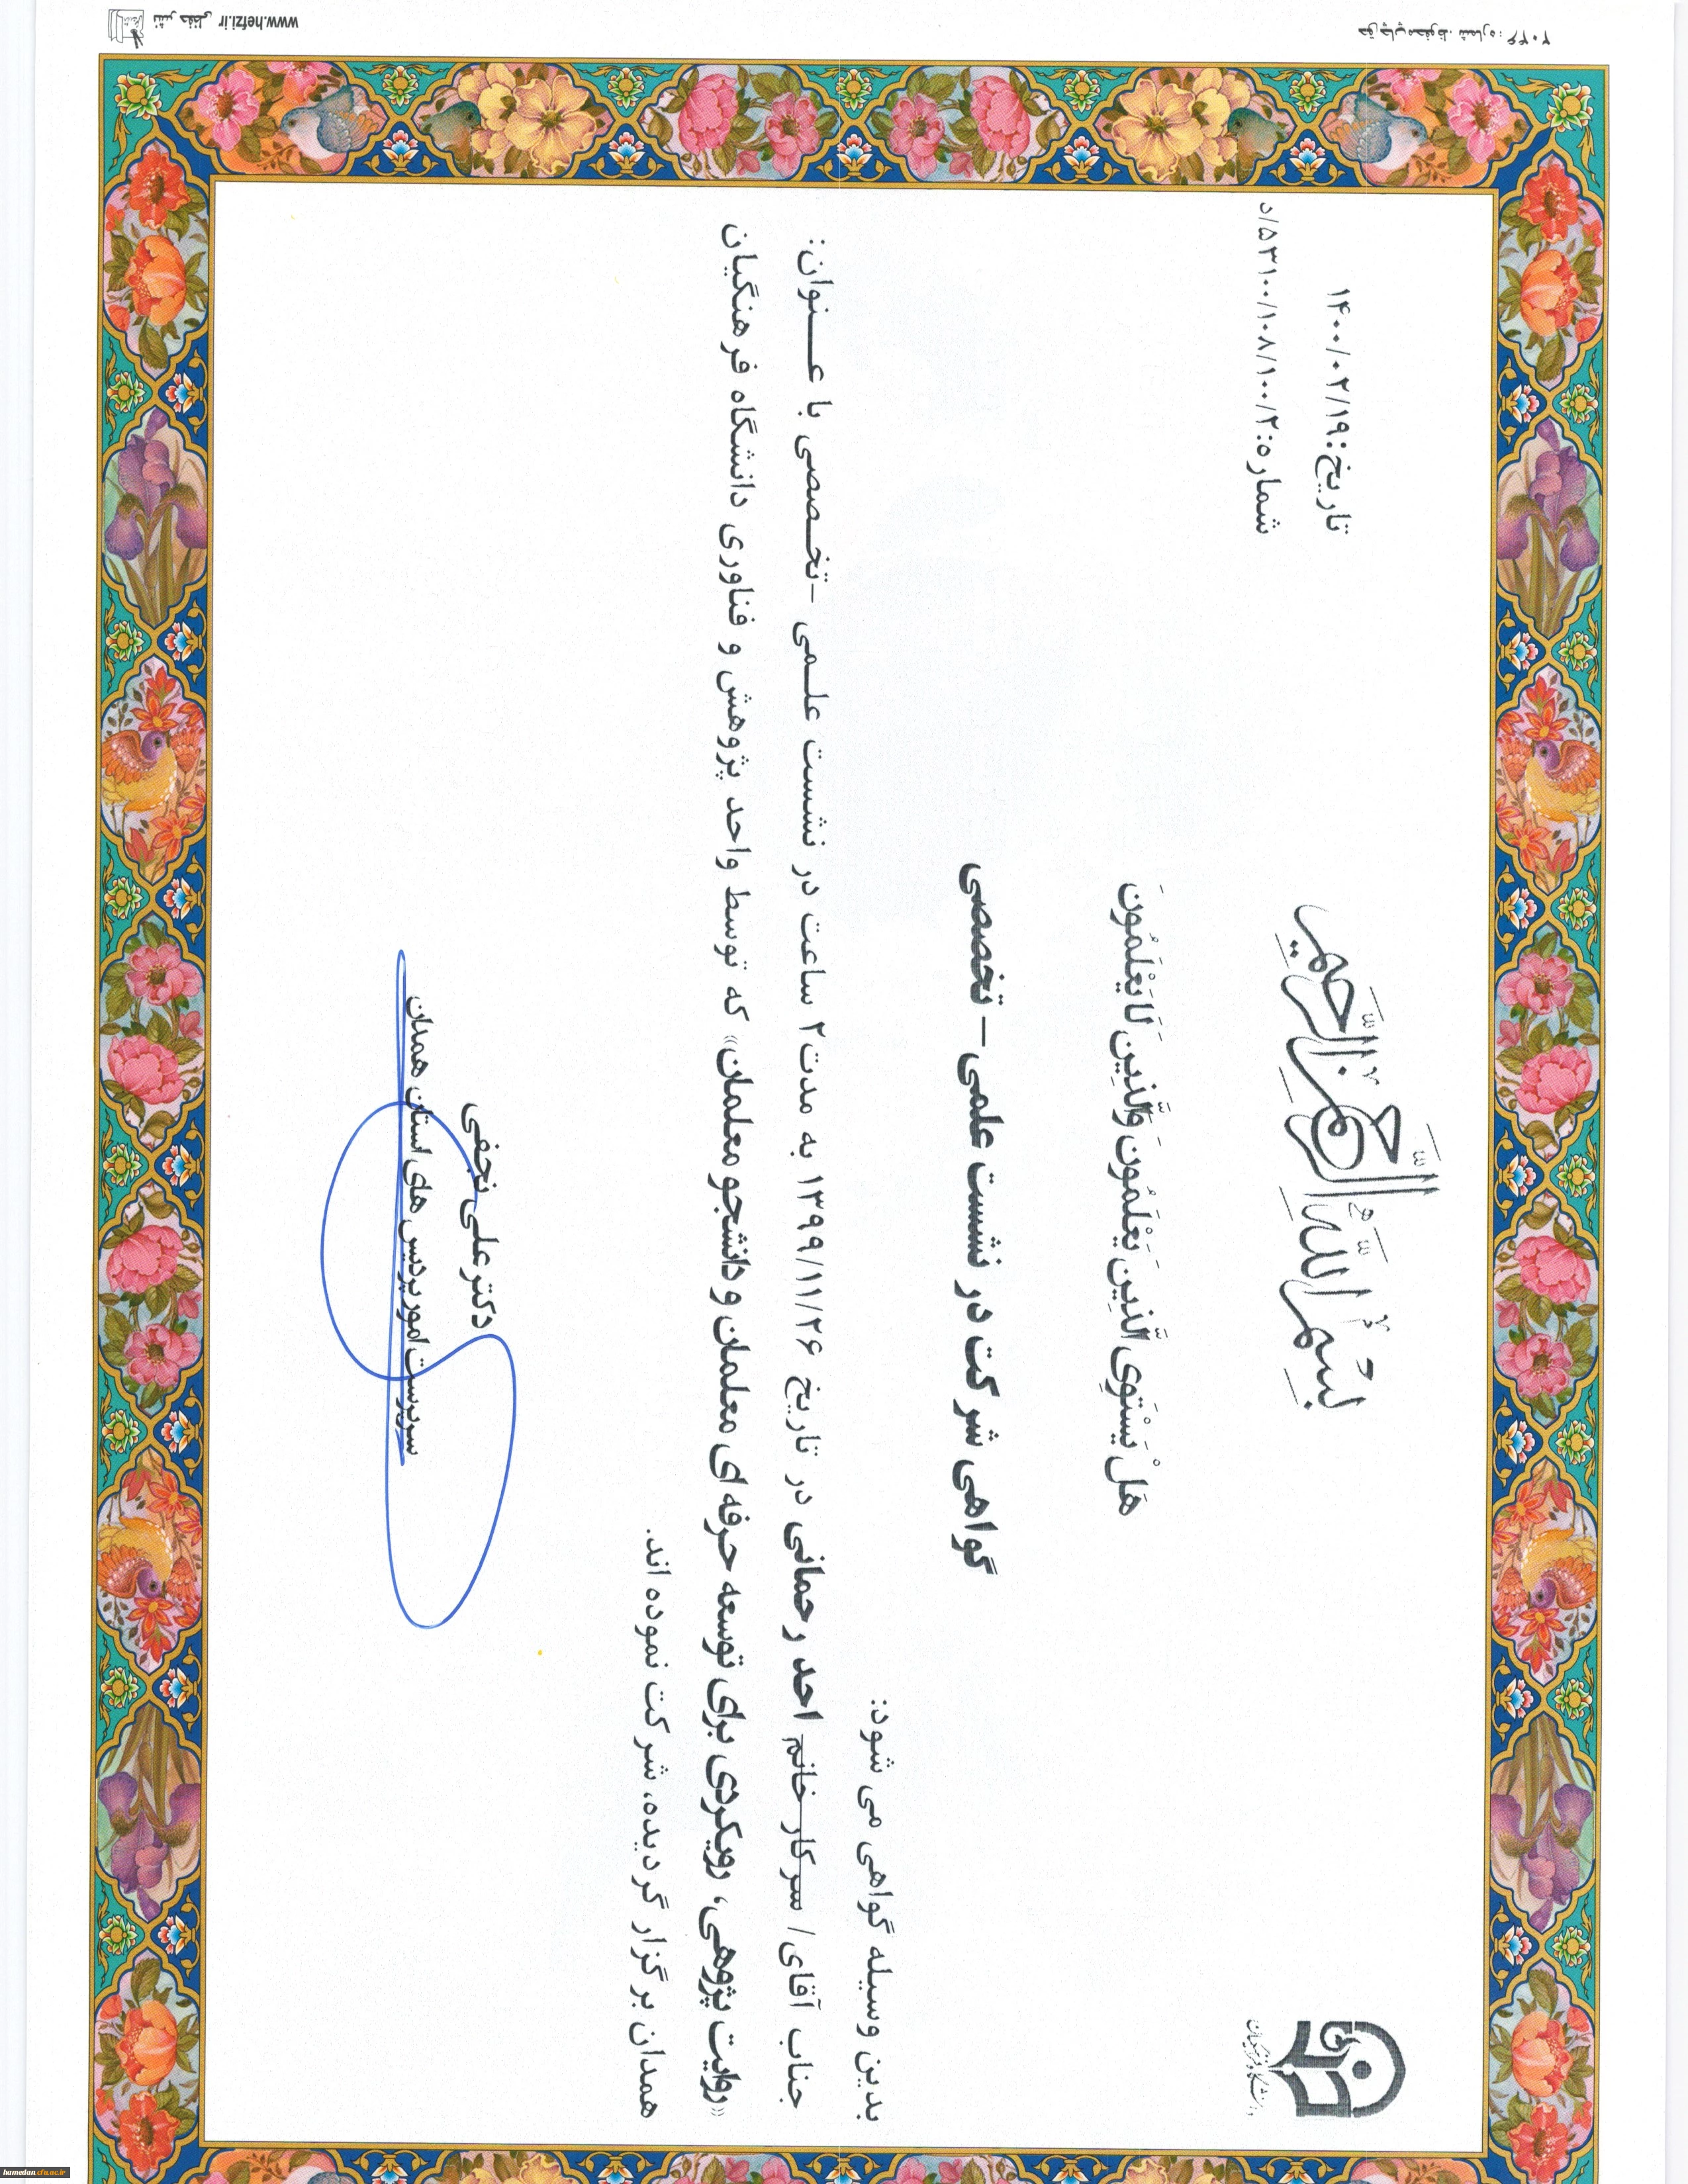 بِسْمِ اللَّهِ الرَّحْمَنِ الرَّحِيمِ
تاریخ: ۱۴۰۰/۰۲/۱۹
شماره: ۵۳۱۰۰/۱۰۸/۱۰۰/۲/د
دانشگاه فرهنگیان
هَلْ يَسْتَوِي الَّذِينَ يَعْلَمُونَ وَالَّذِينَ لَا يَعْلَمُونَ
گواهی شرکت در نشست علمی – تخصصی
بدین وسیله گواهی می شود:
جناب آقای/ سرکار خانم احد رحمانی در تاریخ ۱۳۹۹/۱۱/۲۶ به مدت ۲ ساعت در نشست علمی -تخصصی با عنوان:
«روایت پژوهی، رویکردی برای توسعه حرفه ای معلمان و دانشجو معلمان» که توسط واحد پژوهش و فناوری دانشگاه فرهنگیان
همدان برگزار گردیده، شرکت نموده اند.
دکتر علی نجفی
سرپرست امور پردیس های استان همدان
www.hefzi.ir
hamedan.cfu.ac.ir